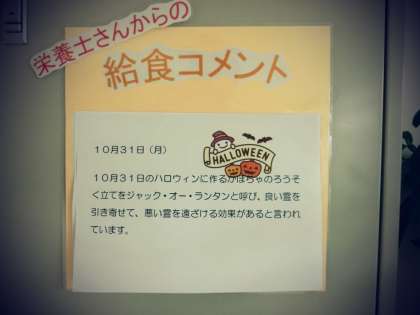 栄養士さんからの
給食コメント
10月31日（月）
HALLOWEEN
10月31日のハロウィンに作るかぼちゃのろうそ
く立てをジャック・オー・ランタンと呼び、良い霊を
引き寄せて、悪い霊を遠ざける効果があると言われ
ています。